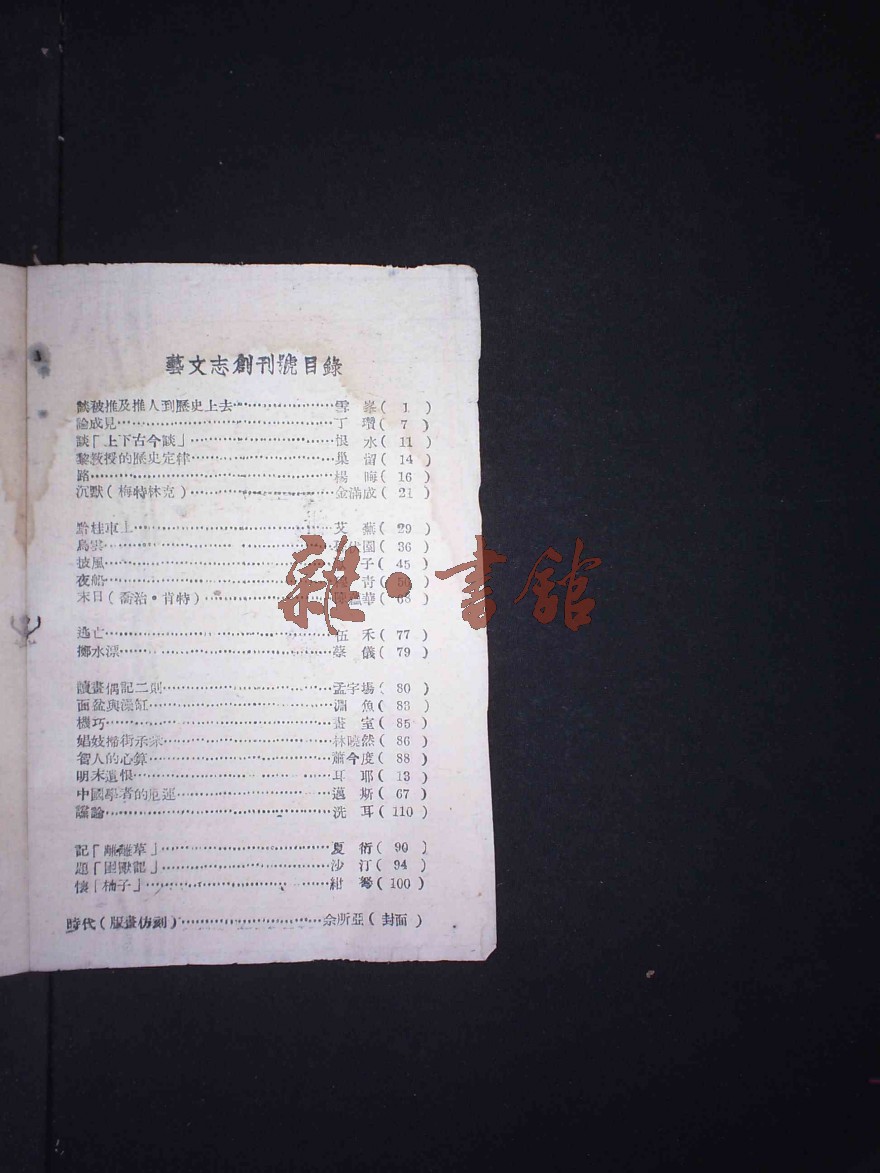 藝文志創刊號目錄
談被推及推人到歷史上去⋯⋯雪 峯( 1 )
論成見⋯⋯丁 瓚( 7 )
談「上下古今談」⋯⋯恨 水( 11 )
黎教授的歷史定律⋯⋯巢 留( 14 )
路⋯⋯楊 晦( 16 )
沉默(梅特林克)⋯⋯金滿成( 21 )
黔桂車上⋯⋯艾 蕪( 29 )
烏雲⋯⋯伏園( 36 )
披風⋯⋯子( 45 )
夜船⋯⋯青( 56 )
末日(喬治·肯特)⋯⋯華( 68 )
逃亡⋯⋯伍 禾( 77 )
擲水漂⋯⋯蔡 儀( 79 )
讀畫偶記二則⋯⋯孟宇場( 80 )
面盆與澡缸⋯⋯淵 魚( 83 )
機巧⋯⋯畫 室( 85 )
娼妓掃街示衆⋯⋯林曉然( 86 )
智人的心算⋯⋯蕭今度( 88 )
明末遺恨⋯⋯耳 耶( 13 )
中國學者的厄運⋯⋯邁 斯( 67 )
讕論⋯⋯洗 耳( 110 )
記「離離草」⋯⋯夏 衍( 90 )
題「困獸記」⋯⋯沙 汀( 94 )
懷「柚子」⋯⋯紺 弩( 100 )
時代(版畫仿刻)⋯⋯余所亞( 封面 )
雜·書館